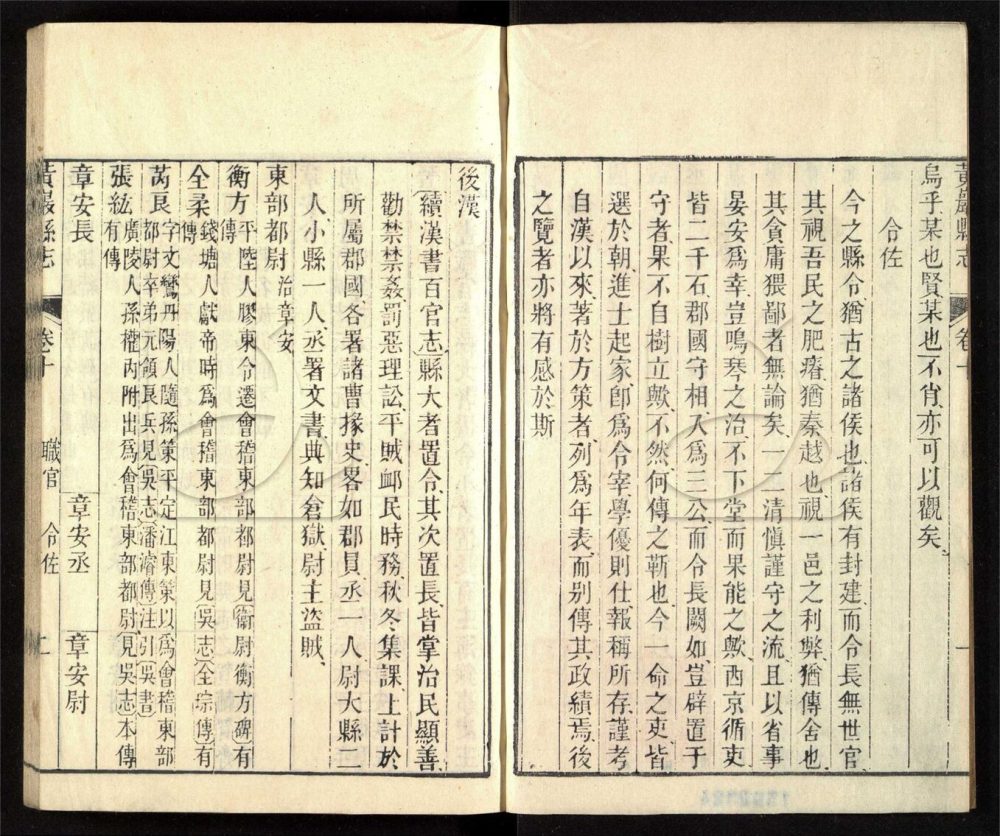 黃巖縣志 卷十 一
烏乎某也賢某也不肖亦可以觀矣
令佐
今之縣令猶古之諸侯也諸侯有封建而令長無世官
其視吾民之肥瘠猶秦越也視一邑之利弊猶傳舍也
其貪庸猥鄙者無論矣一二清愼謹守之流且以省事
晏安爲幸豈嗚琴之治不下堂而果能之歟西京循吏
皆二千石郡國守相入爲三公而令長闕如豈辟置于
守者果不自樹立歟不然何傳之靳也今一命之吏皆
選於朝進士起家卽爲令宰學優則仕報稱所存謹考
自漢以來著於方策者列爲年表而別傳其政績焉後
之覽者亦將有感於斯
後漢
續漢書百官志縣大者置令其次置長皆掌治民顯善
勸禁禁姦罰惡理訟平賊衈民時務秋冬集課上計於
所屬郡國各署諸曹掾史畧如郡員丞一人尉大縣二
人小縣一人丞署文書典知倉獄尉主盜賊
東部都尉 治章安
衡方 平陸人膠東令遷會稽東部都尉見衞尉衡方碑有
傳
全柔 錢塘人獻帝時爲會稽東部都尉見吳志全琮傳有
傳
芮良 字文鸞丹陽人隨孫策平定江東策以爲會稽東部
都尉卒弟元領良兵見吳志潘濬傳注引吳書
張紘 廣陵人孫權內附出爲會稽東部都尉見吳志本傳
有傳
章安長 章安丞 章安尉
黃巖縣志 卷十 職官 令佐 二